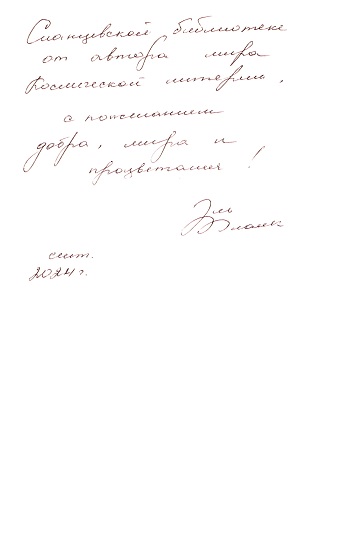 Сланцевской библиотеке
от автора мира
Космической империи,
с пожеланием
добра, мира и
процветания!
Эль
Бланк
сент.
2024 г.